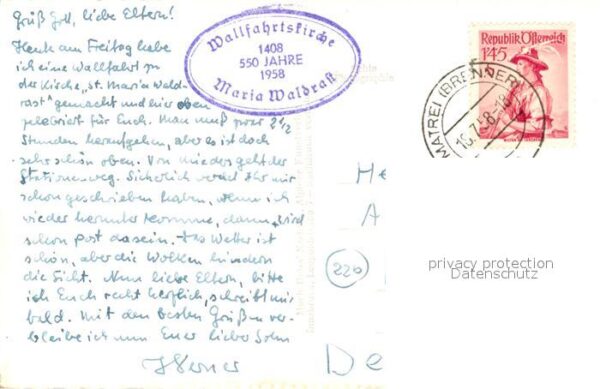 Grüß Gott, liebe Eltern!
Heute am Freitag habe
ich eine Wallfahrt zu
der Kirche, „St. Maria Wald-
rast" gemacht und hier oben
zelebriert für Euch. Man muß zwar 2 1/2
Stunden heraufgehen, aber es ist doch
sehr schön oben. Von hier geht der
Stationenweg. Sicherlich werdet Ihr mir
schon geschrieben haben, wenn ich
wieder herunter komme, dann wird
schon Post da sein. Das Wetter ist
schön, aber die Wolken hindern
die Sicht. Nun liebe Eltern, bitte
ich Euch recht herzlich, schreibt mir
bald. Mit den besten Grüßen ver-
bleibe ich nun Euer lieber Sohn
Werner
Wallfahrtskirche
1408
550 JAHRE
1958
Maria Waldrast
Republik Österreich
1.45
MATREI (BRENNER)
He
A
220
De
privacy protection
Datenschutz